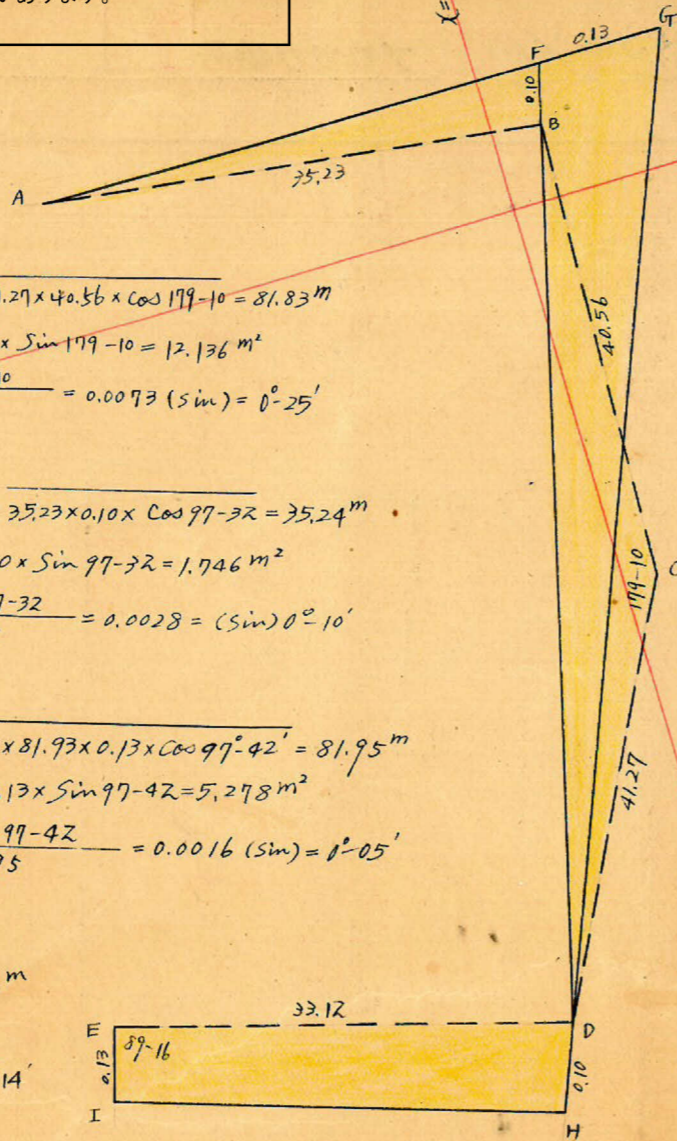 G
0.13
F
0.10
B
35.23
A
.27×40.56×Cos 179-10 = 81.83ᵐ
× Sin 179-10 = 12.136 m²
10
= 0.0073 (Sin) = 0°-25′
40.56
35.23×0.10× Cos 97-32 = 35.24ᵐ
0× Sin 97-32 = 1.746 m²
7-32
= 0.0028 = (Sin) 0°-10′
C
179-10
× 81.93×0.13×Cos 97°-42′ = 81.95ᵐ
13× Sin 97-42 = 5.278 m²
97-42
95
= 0.0016 (Sin) = 0°-05′
41.27
m
33.12
E
89-16
D
0.13
0.10
14′
I
H